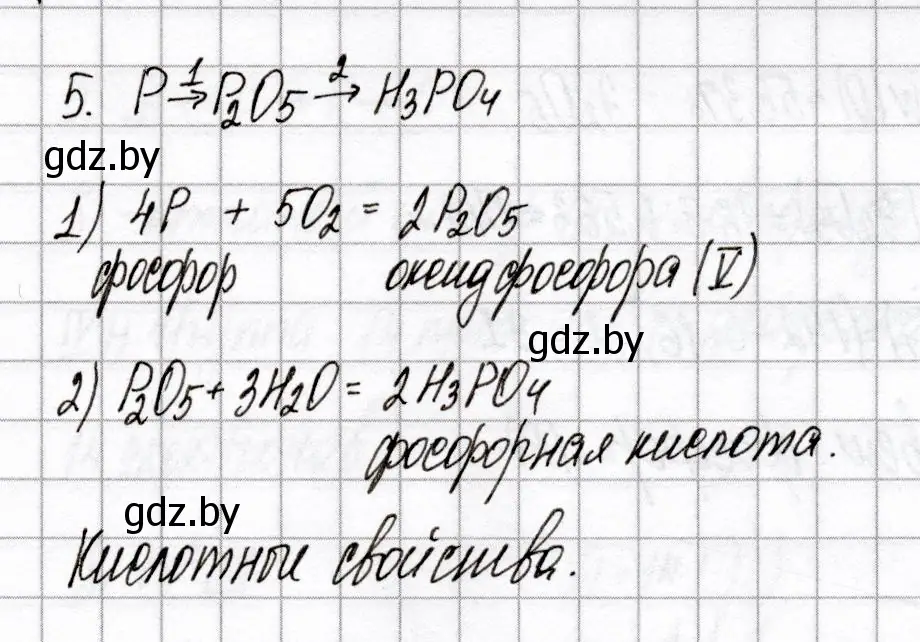 5. P →¹ P₂O₅ →² H₃PO₄
gdz.by
1) 4P + 5O₂ = 2P₂O₅
фосфор оксид фосфора (V)
gdz.by
2) P₂O₅ + 3H₂O = 2H₃PO₄
фосфорная кислота.
gdz.by
Кислотные свойства.